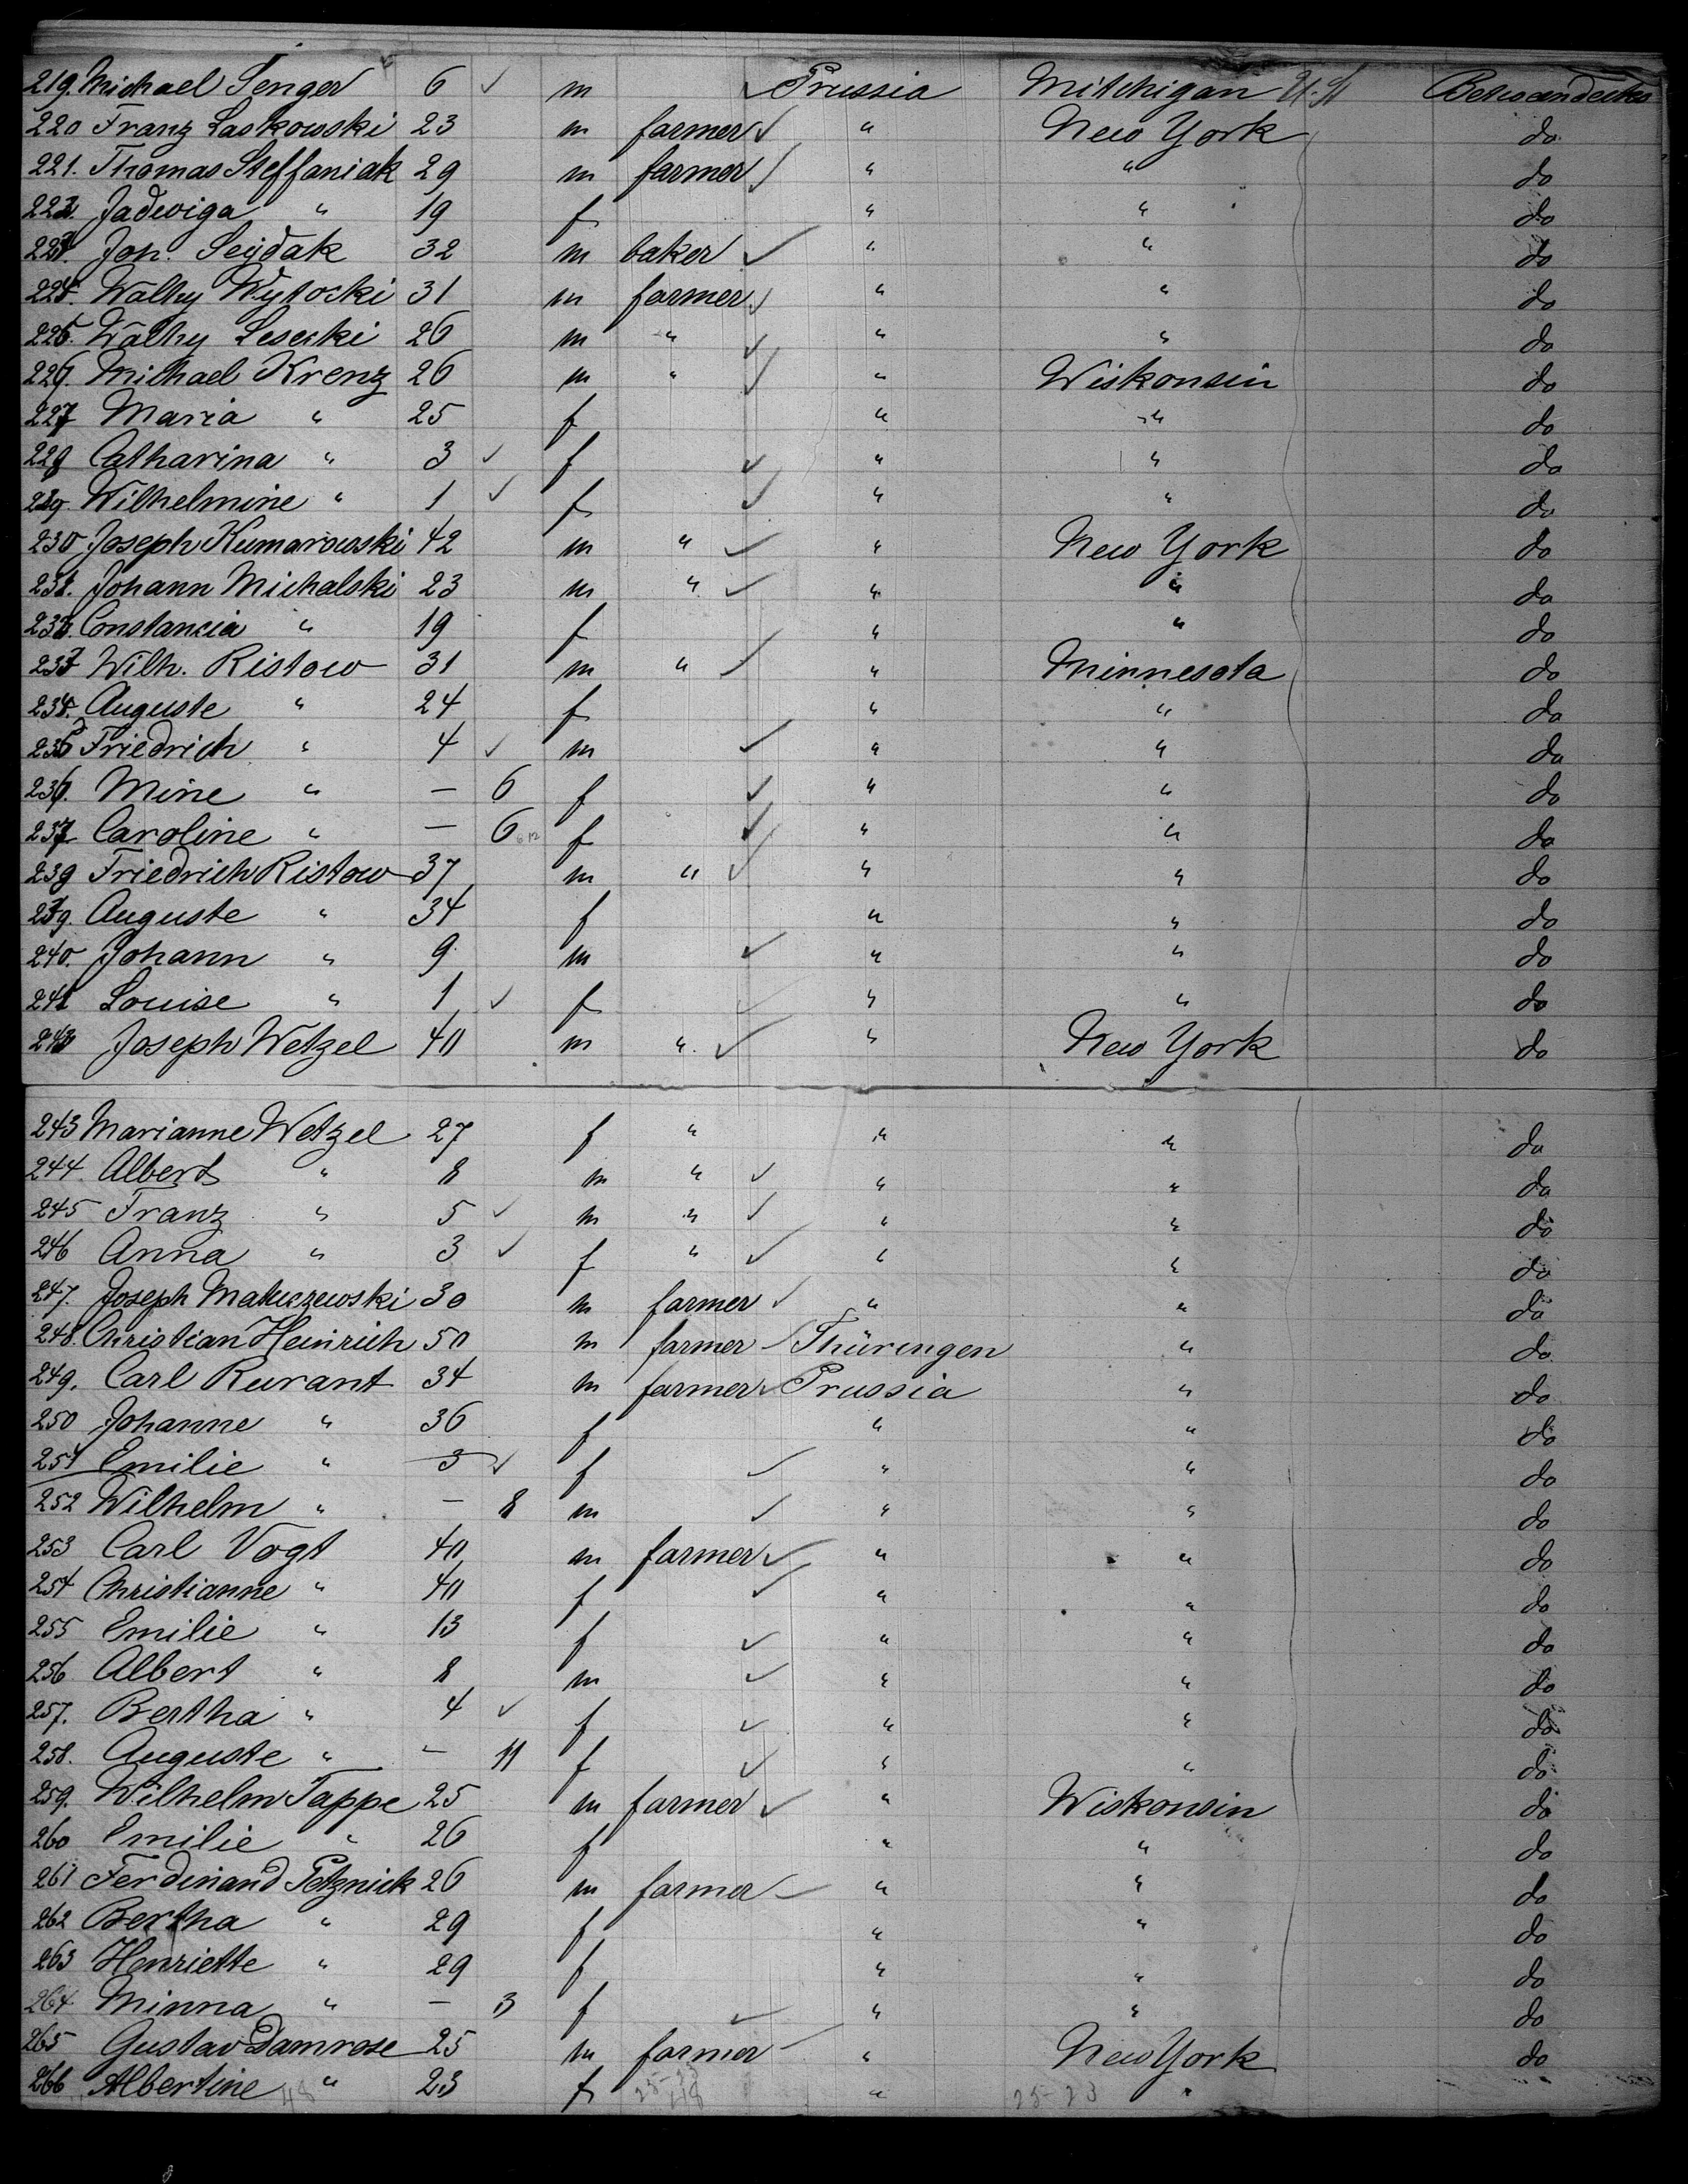 219. Michael Senger 6 ✓ m ✓ Prussia Mitchigan U.St Betweendecks
220 Franz Laskowski 23 m farmer ✓ " New York do
221. Thomas Steffaniak 29 m farmer ✓ " " do
222. Jadwiga " 19 f " " do
223. Joh. Seydak 32 m baker ✓ " " do
224. Wathy Wytoski 31 m farmer ✓ " " do
225. Wathy 26 m " ✓ " " do
226. Michael Krenz 26 m " ✓ " Wiskonsin do
227 Maria " 25 f " " do
228 Catharina " 3 ✓ f ✓ " " do
229. Wilhelmine " 1 ✓ f ✓ " " do
230 Joseph Kumarowski 42 m " ✓ " New York do
231. Johann Michalski 23 m " ✓ " " do
232. Constancia " 19 f " " do
233 Wilh. Ristow 31 m " ✓ " Minnesota do
234. Auguste " 24 f " " do
235 Friedrich " 4 ✓ m ✓ " " do
236. Mine " – 6 f ✓ " " do
237 Caroline " – 6 f ✓ " " do
238 Friedrich Ristow 37 m " ✓ " " do
239. Auguste " 34 f " " do
240. Johann " 9 m ✓ " " do
241 Louise " 1 ✓ f ✓ " " do
242 Joseph Wetzel 40 m " ✓ " New York do
243 Marianne Wetzel 27 f " " " do
244. Albert " 8 m " ✓ " " do
245 Franz " 5 ✓ m " ✓ " " do
246 Anna " 3 ✓ f " ✓ " " do
247. Joseph Matuszewski 30 m farmer ✓ " " do
248. Christian Heinrich 50 m farmer ✓ Thüringen " do
249. Carl Rurant 34 m farmer ✓ Prussia " do
250 Johanne " 36 f " " do
251 Emilie " 3 ✓ f ✓ " " do
252 Wilhelm " – 8 m ✓ " " do
253 Carl Vogt 40 m farmer ✓ " " do
254 Christianne " 40 f ✓ " " do
255 Emilie " 13 f ✓ " " do
256 Albert " 8 m ✓ " " do
257. Bertha " 4 ✓ f ✓ " " do
258. Auguste " – 11 f ✓ " " do
259. Wilhelm Tappe 25 m farmer ✓ " Wiskonsin do
260 Emilie " 26 f " " do
261 Ferdinand Petznick 26 m farmer – " " do
262 Bertha " 29 f " " do
263 Henriette " 29 f " " do
264 Minna " – 3 f ✓ " " do
265 Gustav Damrose 25 m farmer – " New York do
266 Albertine " 23 f " " "
48 25-23 48 25-23